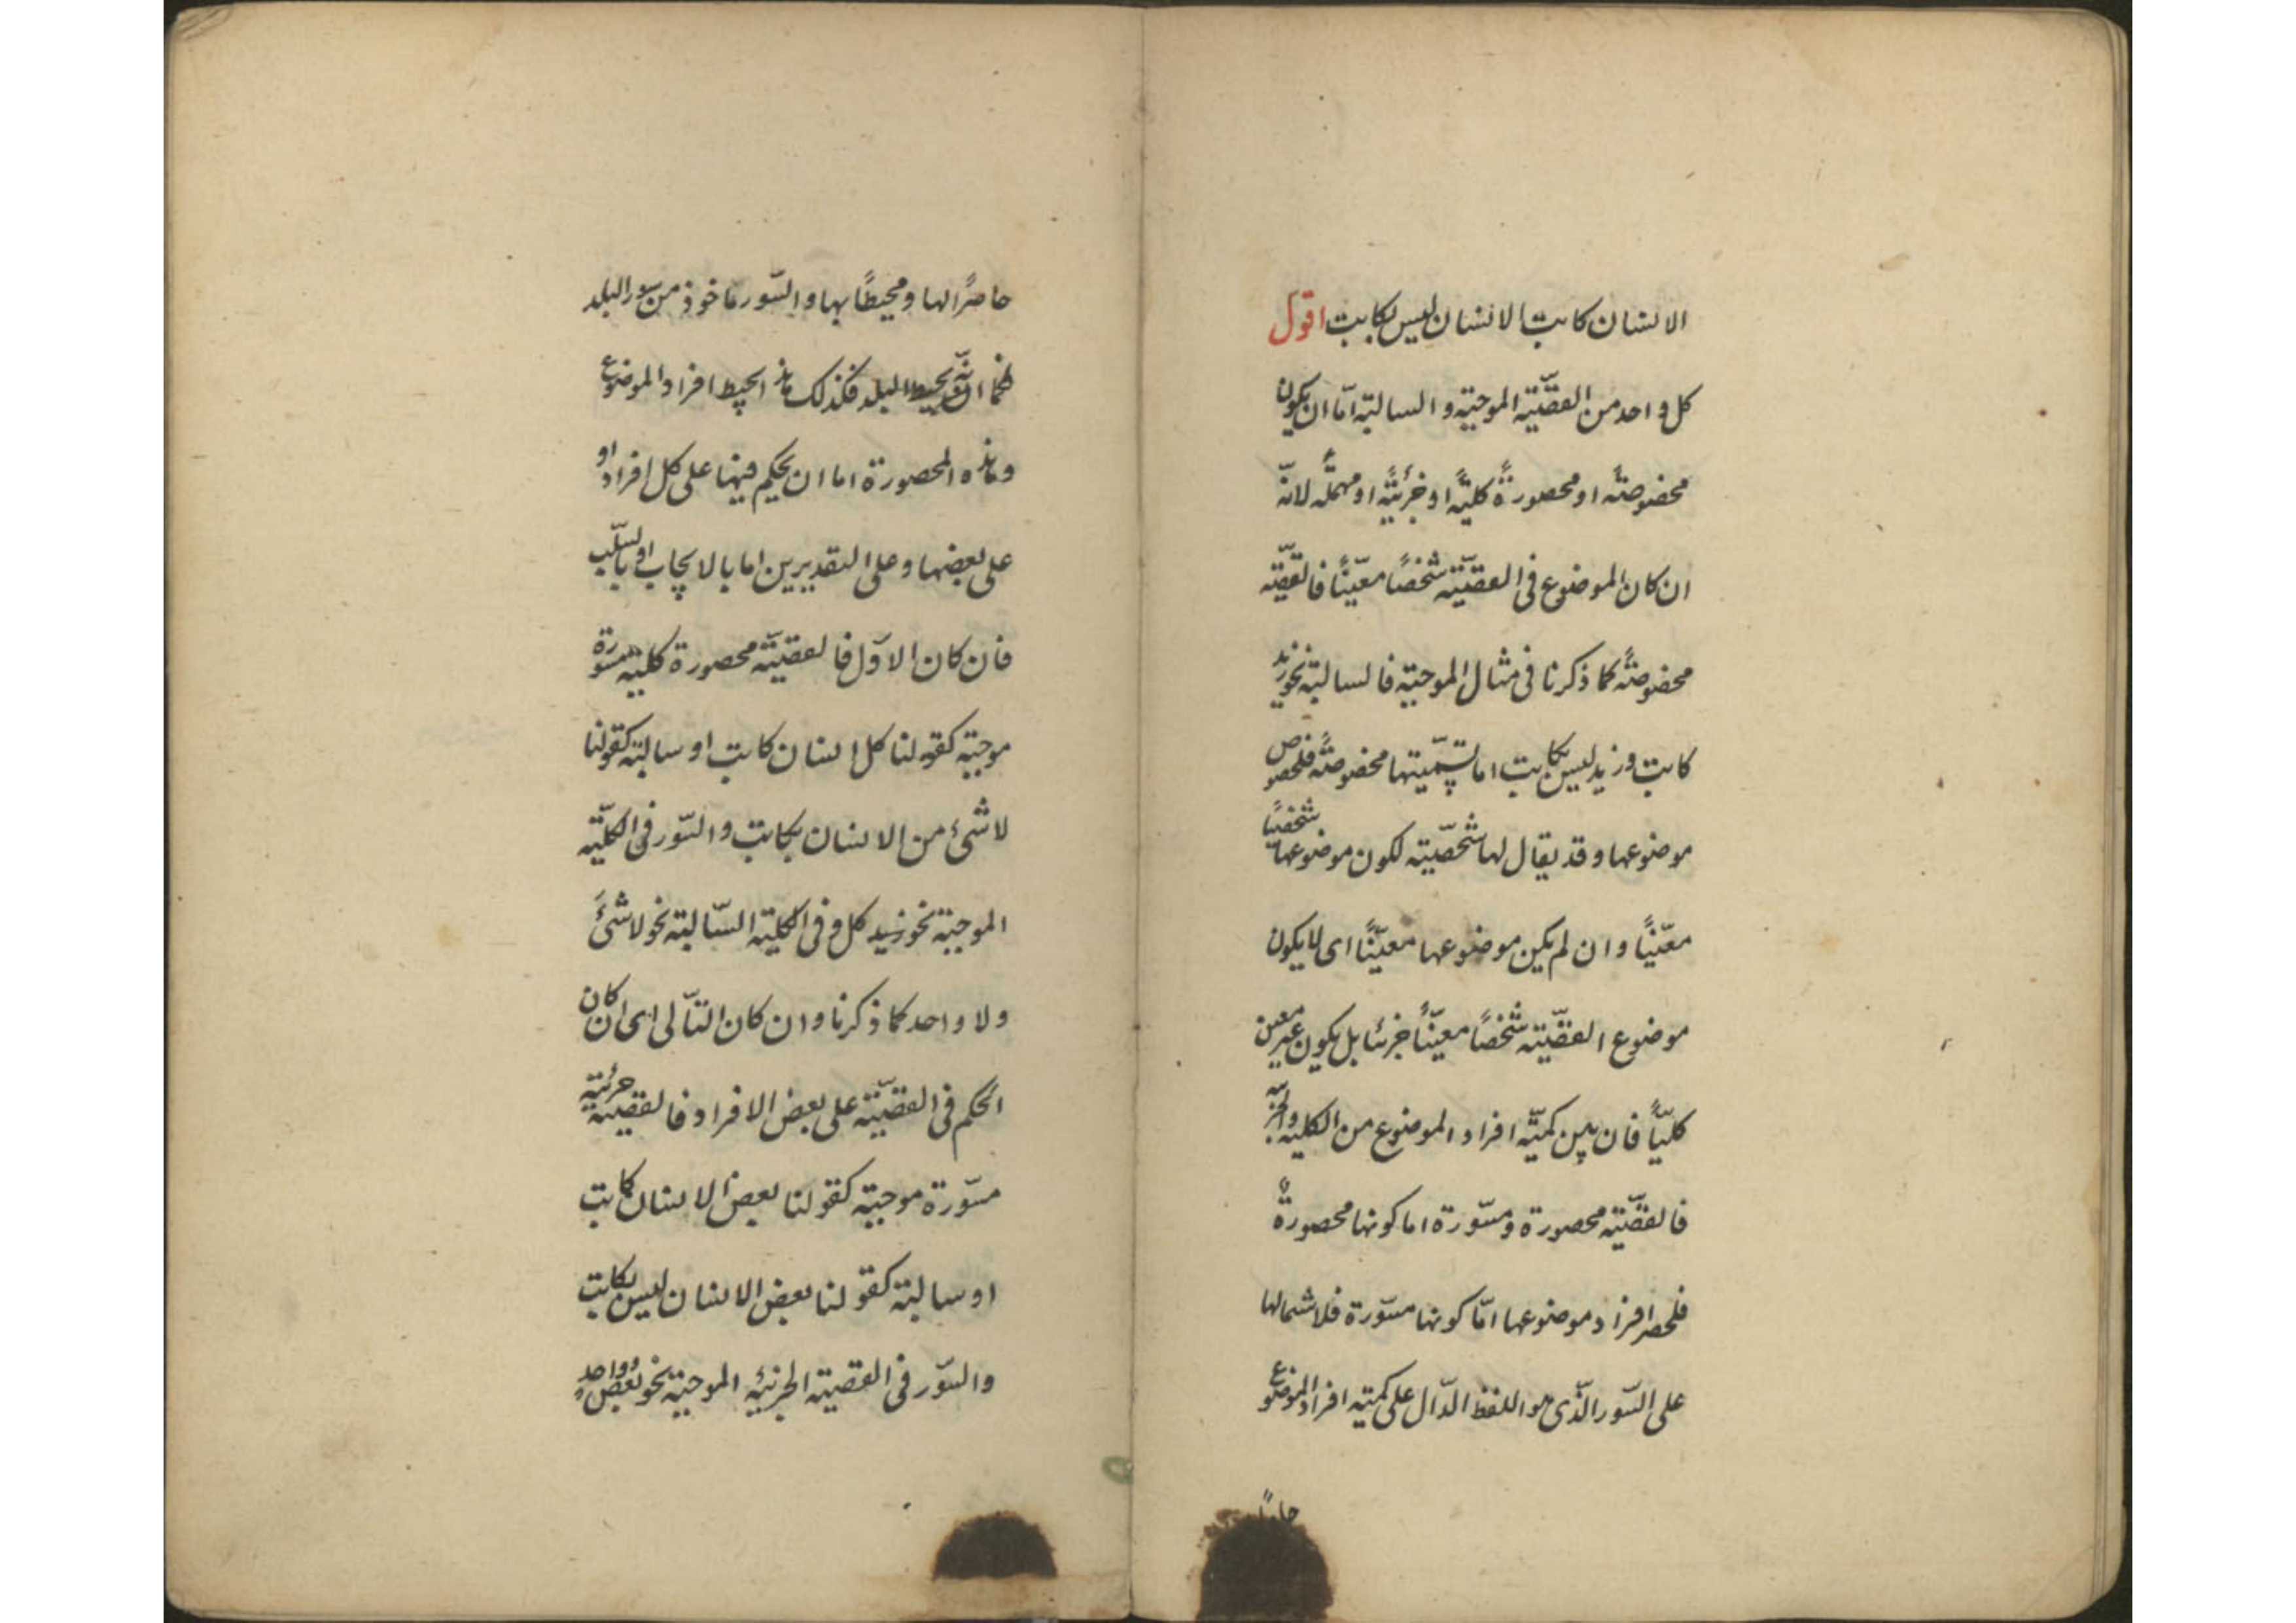 الانسان كاتب الانسان ليس بكاتب اقول
كل واحد من القضيّة الموجبة و السالبة امّا ان يكون
مخصوصةً او محصورةً كليّةً او جزئيّةً او مهملةً لانّه
ان كان الموضوع فى القضيّة شخصًا معيّنًا فالقضيّة
مخصوصةً كما ذكرنا فى مثال الموجبة فالسالبة نحو زيد
كاتب و زيد ليس بكاتب اما تسميتها مخصوصةً فلخصوص
موضوعها و قد يقال لها شخصيّة لكون موضوعها شخصيًا
معيّنًا و ان لم يكن موضوعها معيّنًا اى لا يكون
موضوع القضيّة شخصًا معيّنًا جزئيا بل يكون غير معين
كليًّا فان بين كميّة افراد الموضوع من الكلية والجزئية
فالقضيّة محصورة و مسوّرة اما كونها محصورةً
فلحصر افراد موضوعها امّا كونها مسوّرة فلاشتمالها
على السّور الّذى هو اللفظ الدّال على كمية افراد الموضوع
حاصرًا
حاصرًا لها و محيطًا بها و السّور ماخوذ من سور البلد
كما انّه يحيط البلد فكذلك هذا يحيط افراد الموضوع
و هذه المحصورة اما ان يحكم فيها على كل افراد او
على بعضها و على التقديرين اما بالايجاب او بالسّلب
فان كان الاوّل فالقضيّة محصورة كلية مسورة
موجبة كقولنا كل انسان كاتب او سالبة كقولنا
لا شئ من الانسان بكاتب و السّور فى الكليّة
الموجبة نحو كل و فى الكلية السّالبة نحو لا شئ
و لا واحد كما ذكرنا و ان كان الثّانى اى ان كان
الحكم فى القضيّة على بعض الافراد فالقضية جزئية
مسوّرة موجبة كقولنا بعض الانسان كاتب
او سالبة كقولنا بعض الانسان ليس بكاتب
و السّور فى القضية الجزئية الموجبة نحو بعض و واحد